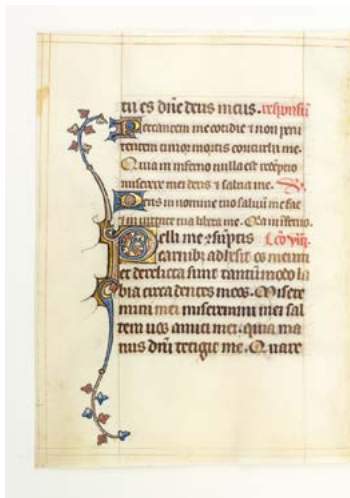 tu es dñe deus meus. responsũ
Peccantem me cotidie ⁊ non peni
tentem timor mortis conturbat me.
Quia in inferno nulla est redẽptio
miserere mei deus ⁊ salua me. V̸.
Deus in nomine tuo saluũ me fac
⁊ in uirtute tua libera me. Qia in ĩferno.
Pelli me ↄsũptis l̃cõ viij.
carnibꝫ adhesit os meum
et derelicta sunt tantũmodo la
bia circa dentes meos. Misere
mini mei miseremini mei sal
tem uos amici mei. quia ma
nus dñi tetigit me. Quare